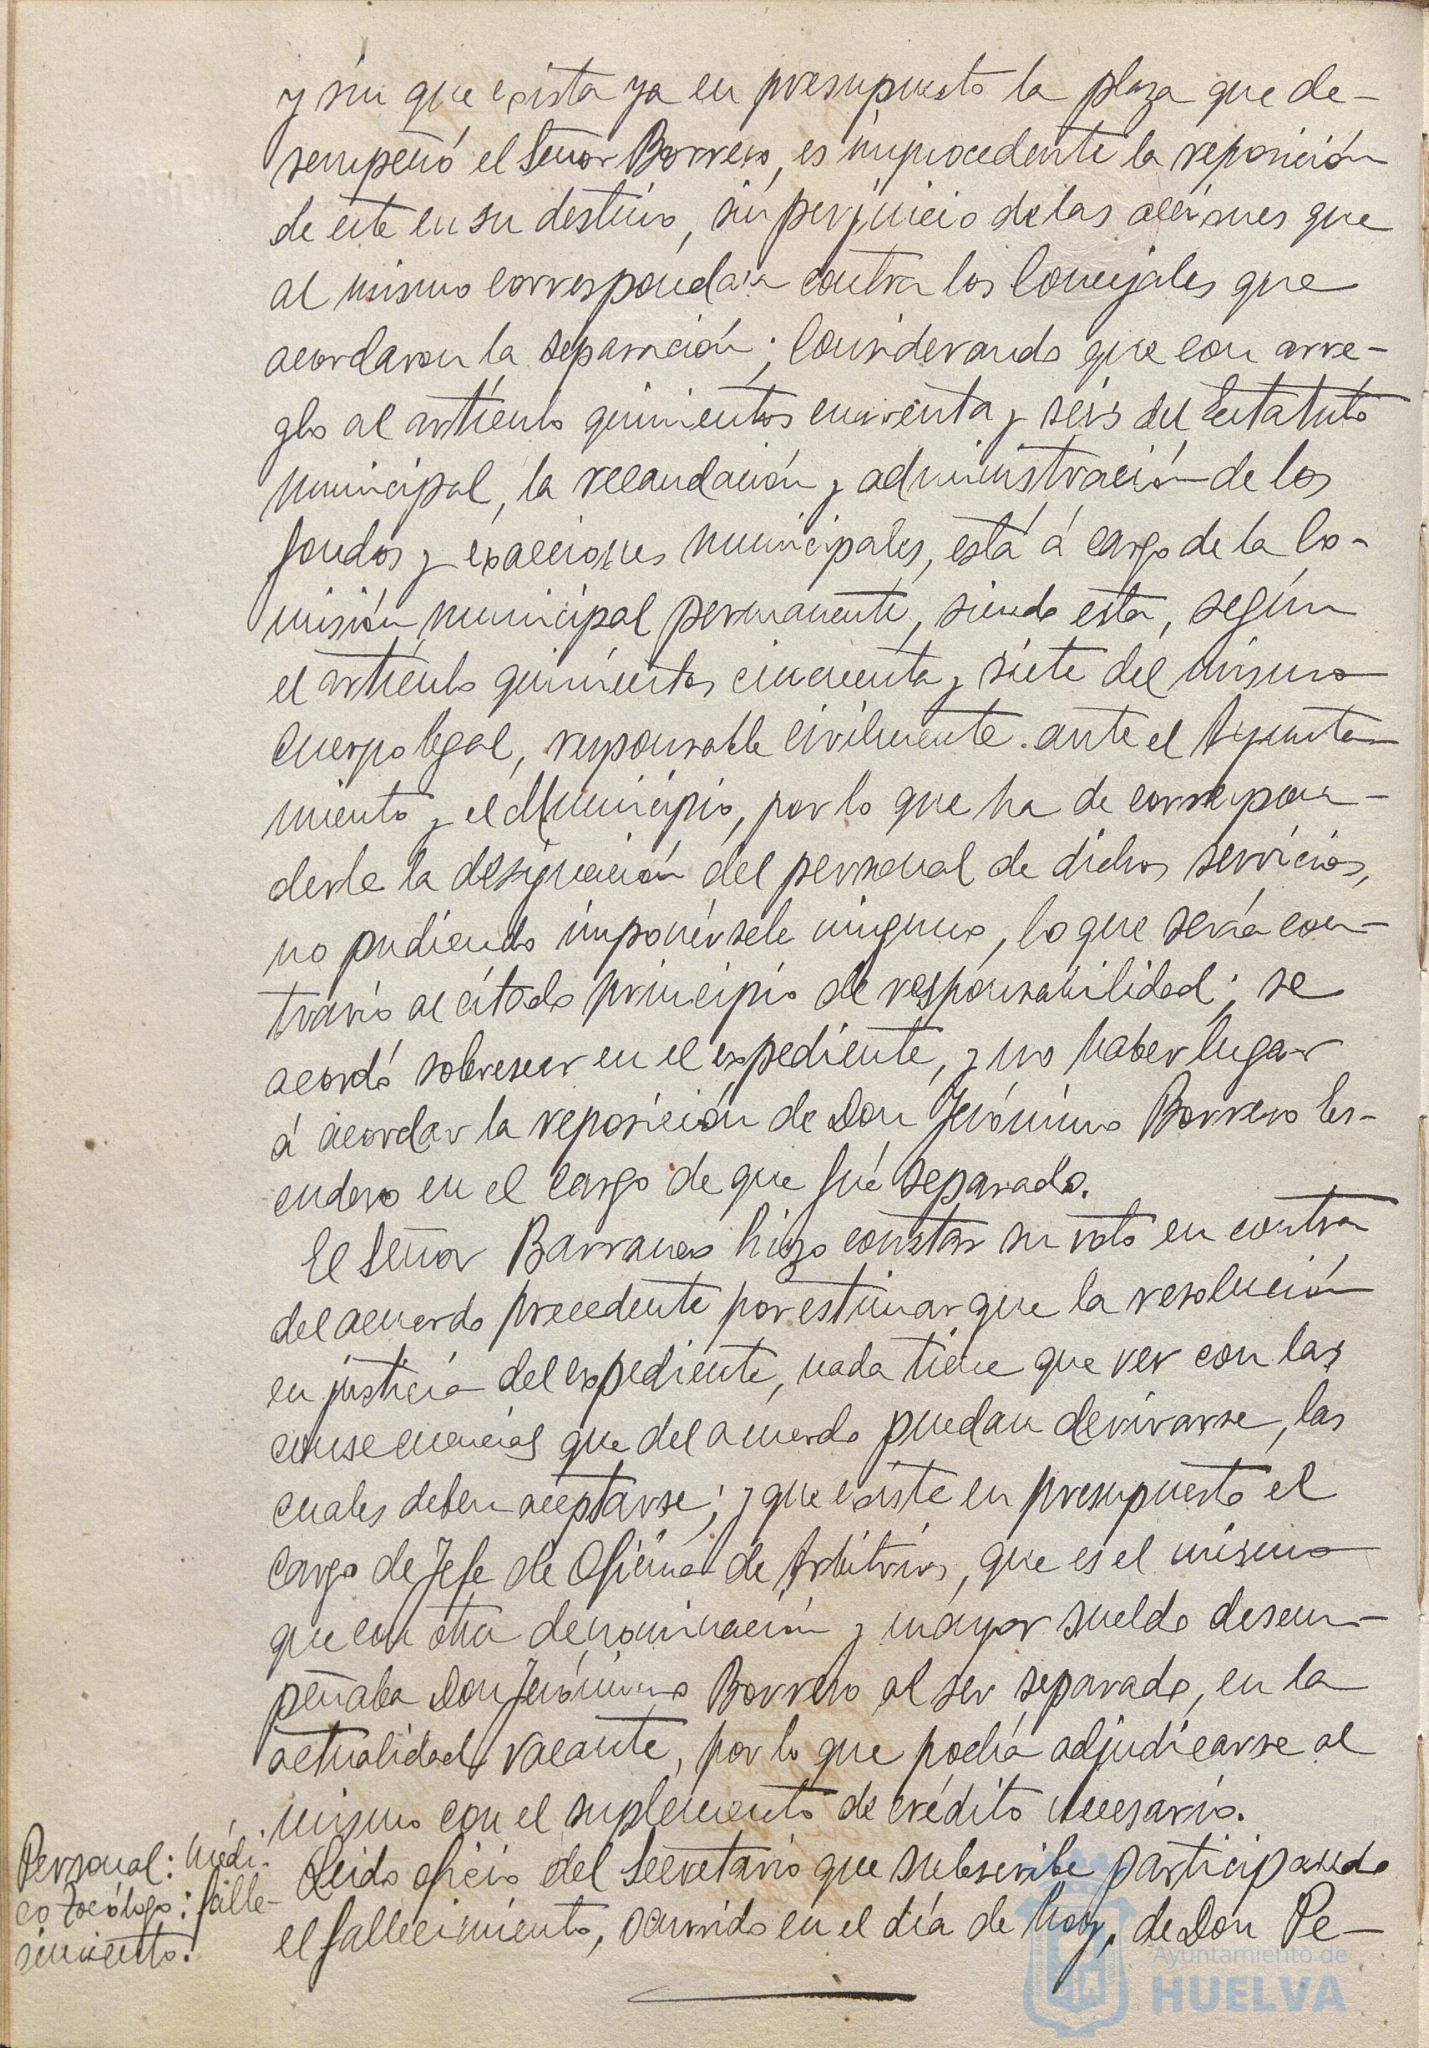 y sin que exista ya en presupuesto la plaza que de-
sempeñó el Señor Borrero, es improcedente la reposición
de este en su destino, sin perjuicio de las acciones que
al mismo correspondan contra los Concejales que
acordaron la separación; Considerando que con arre-
glo al artículo quinientos cuarenta y seis del Estatuto
municipal, la recaudación y administración de los
fondos y exacciones municipales, está á cargo de la Co-
misión municipal permanente, siendo esta, según
el artículo quinientos cincuenta y siete del mismo
cuerpo legal, responsable civilmente ante el Ayunta-
miento y el Municipio, por lo que ha de correspon-
derle la designación del personal de dichos servicios,
no pudiendo imponérsele ninguno, lo que sería con-
trario al citado principio de responsabilidad; se
acordó sobreseer en el expediente, y no haber lugar
á acordar la reposición de Don Jerónimo Borrero Es-
cudero en el cargo de que fué separado.
El Señor Barranco hizo constar su voto en contra
del acuerdo precedente por estimar que la resolución
en justicia del expediente, nada tiene que ver con las
consecuencias que del acuerdo puedan derivarse, las
cuales deben aceptarse; y que existe en presupuesto el
cargo de Jefe de Oficina de Arbitrios, que es el mismo
que con otra denominación y mayor sueldo desem-
peñaba Don Jerónimo Borrero al ser separado, en la
actualidad vacante, por lo que podía adjudicarse al
mismo con el suplemento de crédito necesario.
Personal: Médi-
co Tocólogo: falle-
cimiento.
Leido oficio del Secretario que subscribe participando
el fallecimiento, ocurrido en el día de hoy, de Don Pe-
Ayuntamiento de
HUELVA